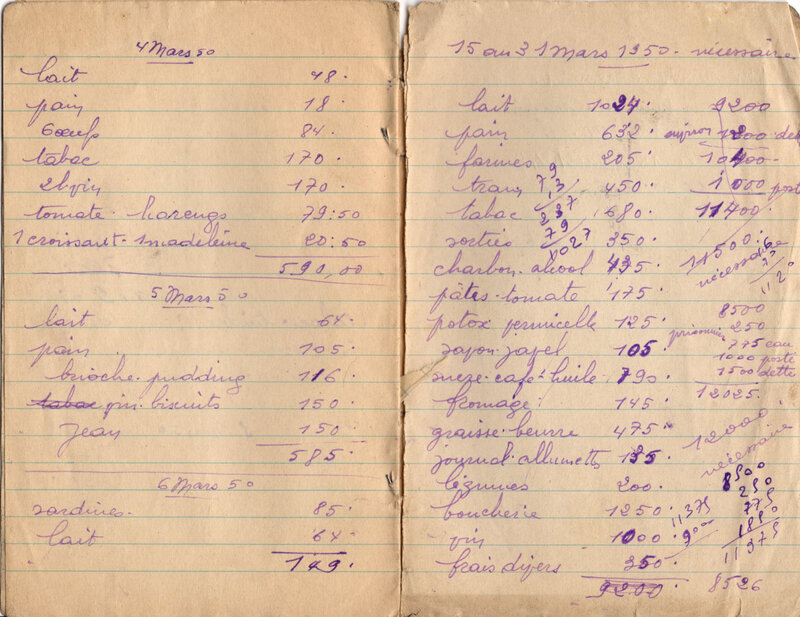 4 Mars 50
lait 48.
pain 18.
6 oeufs 84.
tabac 170.
2l vin 170.
tomate. harengs 79:50
1 croissant. 1 madeleine 20:50
590,00
5 Mars 50
lait 64.
pain 105.
brioche. pudding 116
tabac vin. biscuits 150.
Jean 150.
585.
6 Mars 50
sardines. 85.
lait 64.
149.
15 au 31 Mars 1950. nécessaire
lait 1024. 9200
pain 632. 1200
farines 205. 10400
450. 1000 poste
tabac 680. 11400.
sorties 350.
charbon. alcool 435
pâtes. tomate 175.
potox vermicelle 125.
savon. javel 105
sucre. café. huile. 790.
fromage. 145.
graisse. beurre 475.
journal. allumettes 135.
légumes 200.
boucherie 1250.
vin 1000.
frais divers 350.
9200.
79
13
237
79
1027
14500.
nécessaire
1120
8500
250
775 eau
1000 poste
1500 dette
12025.
12000.
nécessaire
8500
250
775
1850
11375
8526
11375
9000